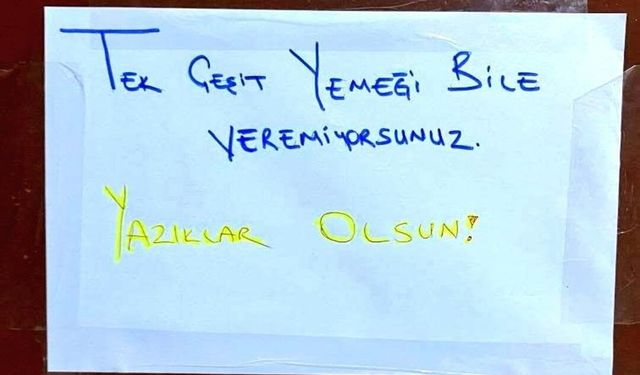 TEK ÇEŞİT YEMEĞİ BİLE
VEREMİYORSUNUZ.
YAZIKLAR OLSUN!